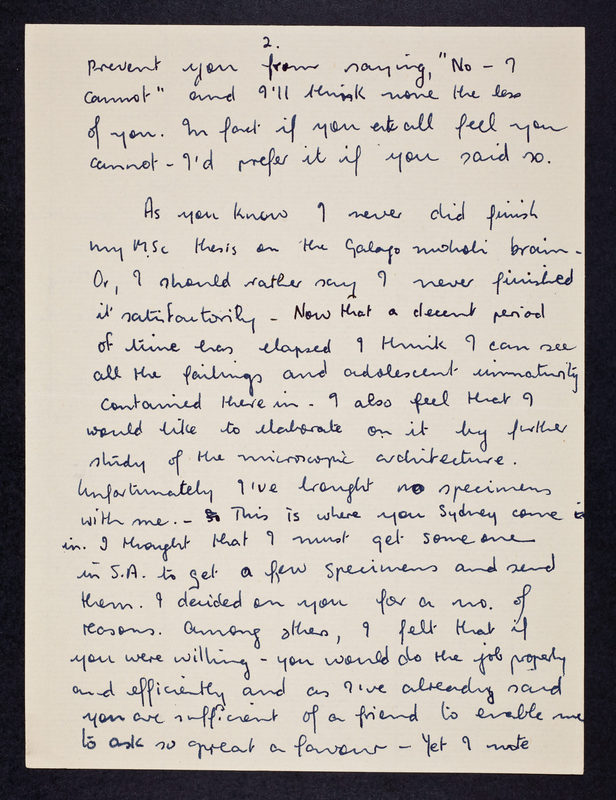 2.
prevent you from saying, "No - I
cannot" and I'll think none the less
of you. In fact if you at all feel you
cannot - I'd prefer it if you said so.
As you know I never did finish
my M.Sc thesis on the Galago moholi brain -
Or, I should rather say I never finished
it satisfactorily - Now that a decent period
of time has elapsed I think I can see
all the failings and adolescent immaturity
contained therein - I also feel that I
would like to elaborate on it by further
study of the microscopic architecture.
Unfortunately I've brought no specimens
with me. - This is where you Sydney come
in. I thought that I must get someone
in S.A. to get a few specimens and send
them. I decided on you for a no. of
reasons. Among others, I felt that if
you were willing - you would do the job properly
and efficiently and as I've already said
you are sufficient of a friend to enable me
to ask so great a favour - Yet I note